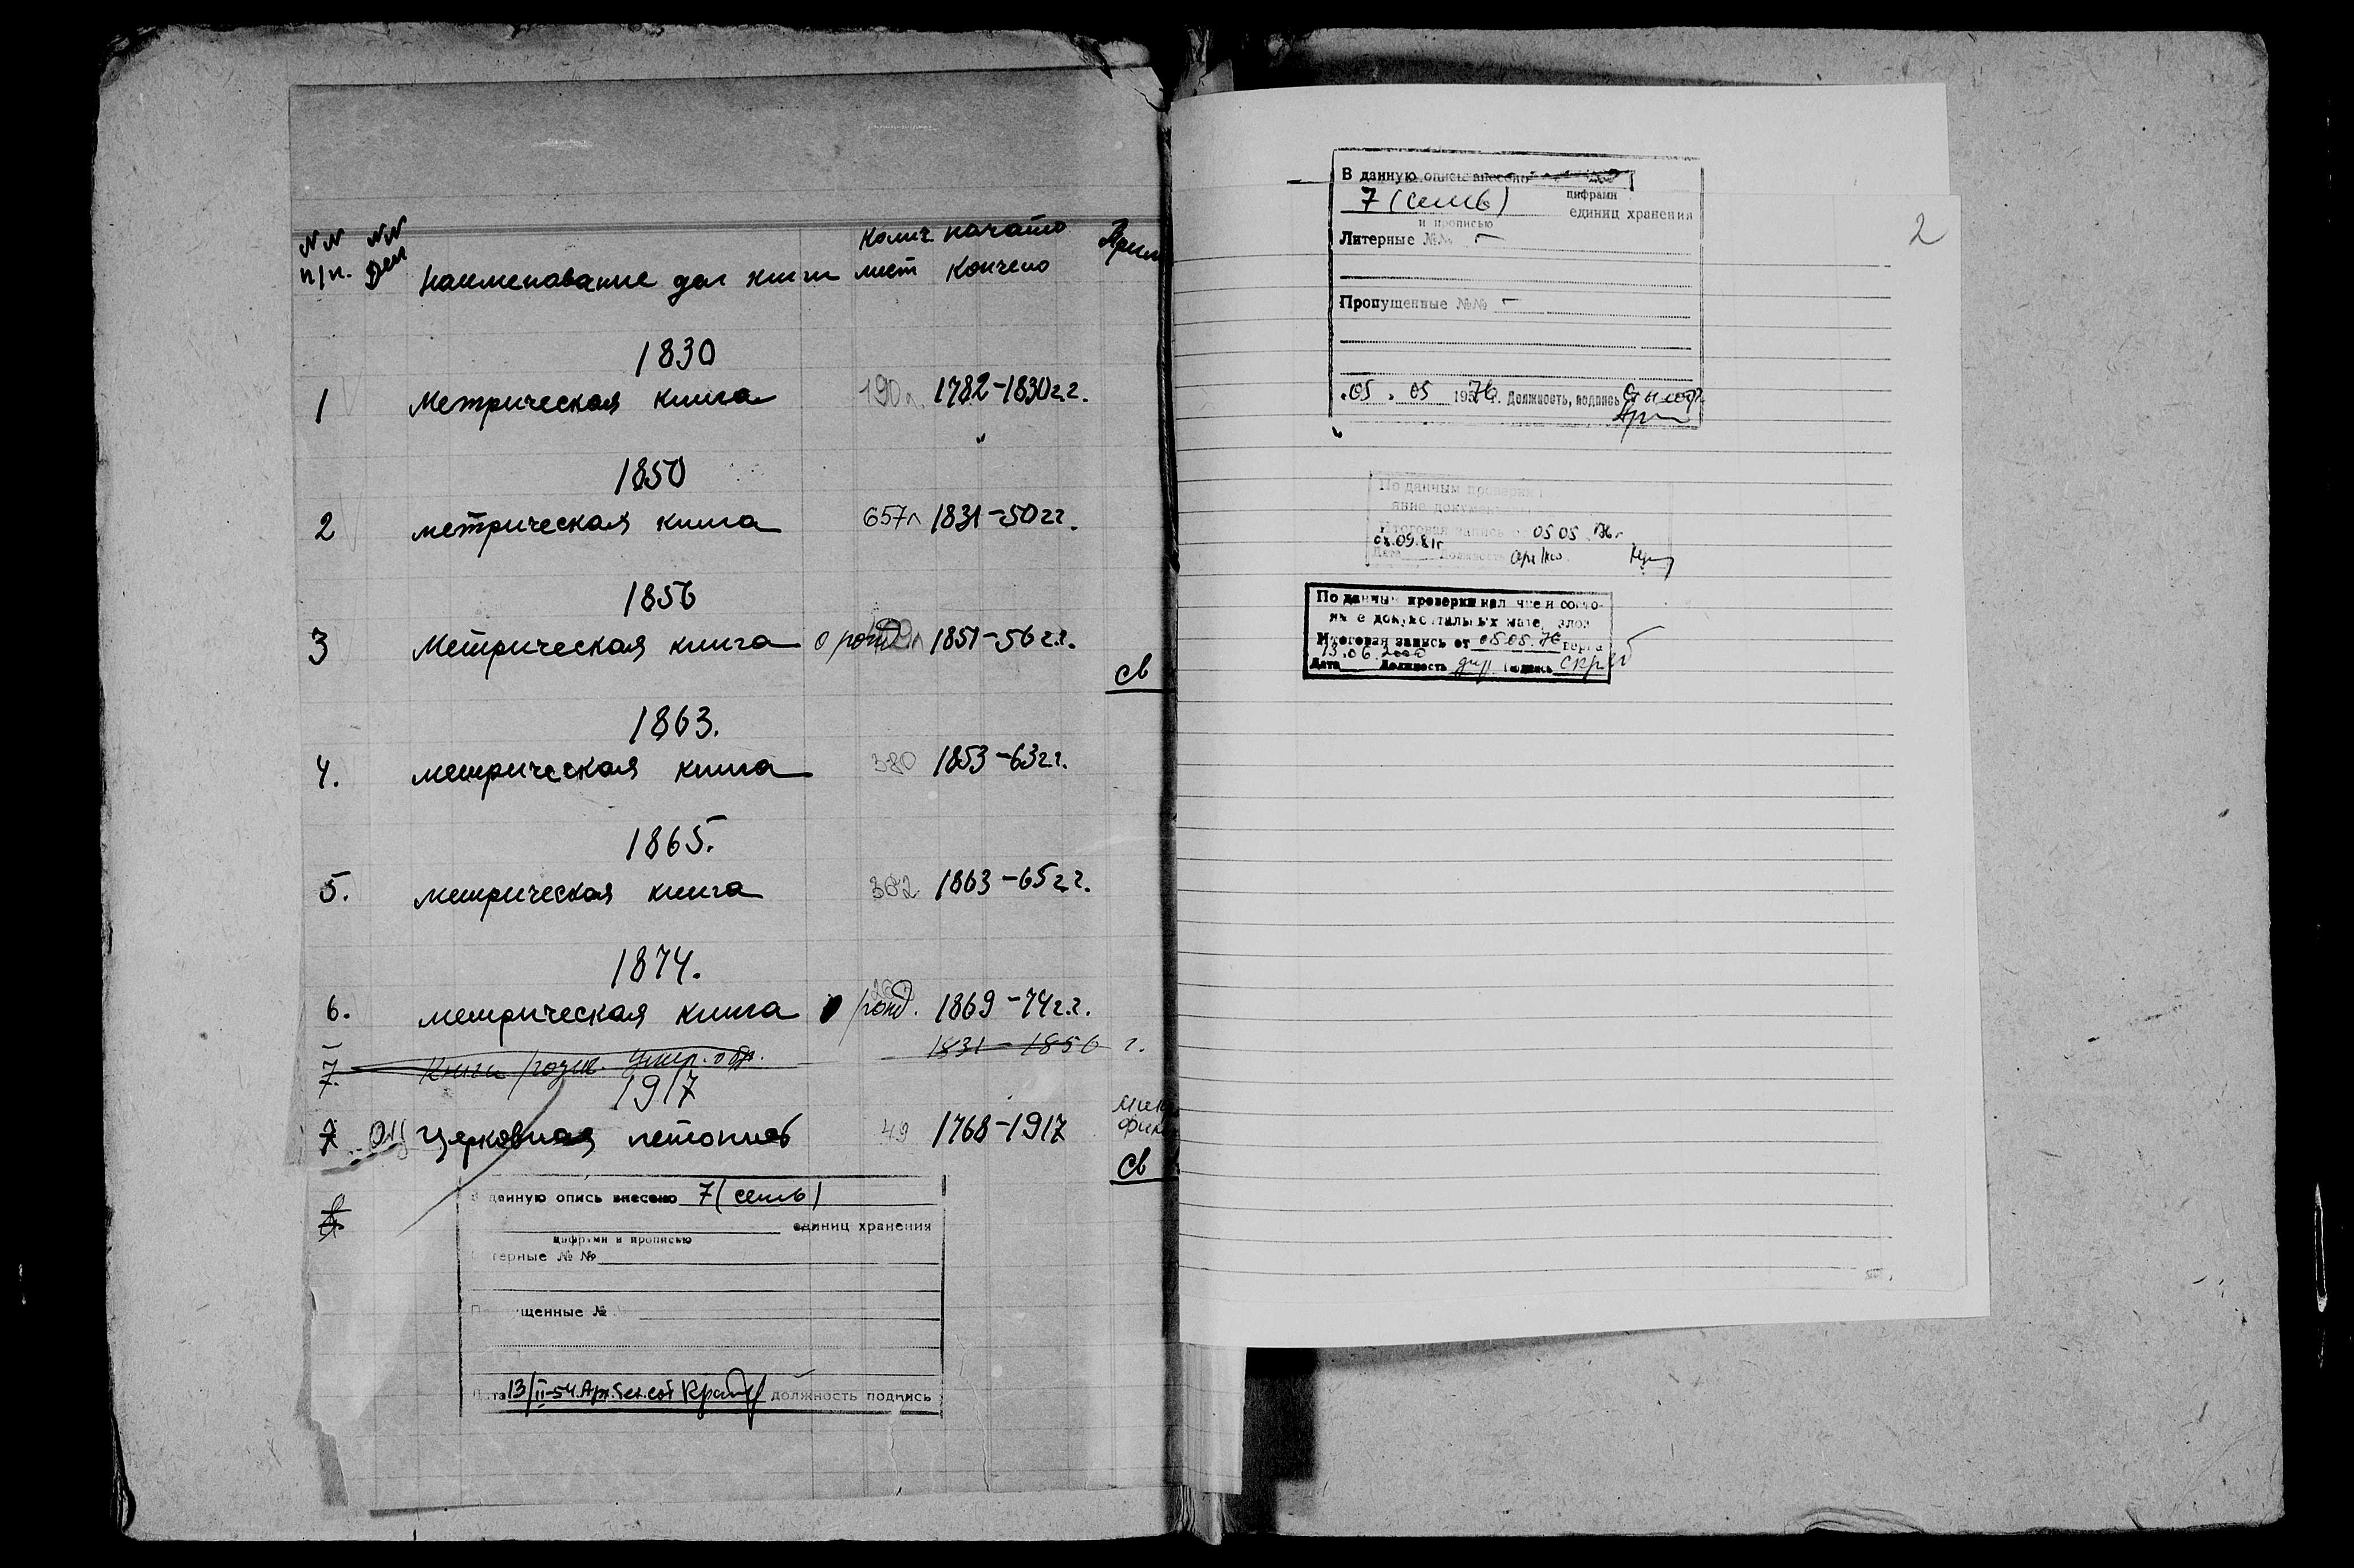 NN NN колич. начато Прим
п/п. Дел наименование дел книги лист кончено
1830
1 Метрическая книга 190л. 1782-1830г.г.
1850
2 метрическая книга 657л 1831-50гг.
1856
3 Метрическая книга о рожд 1851-56г.г.
св
1863.
4. метрическая книга 380 1853-63гг.
1865.
5. метрическая книга 362 1863-65гг.
1874.
6. метрическая книга рожд. 1869-74г.г.
7. Книги 1831-1856 г.
1917
7 ОЦ Церковная летопись 49 1768-1917
св
8.
В данную опись внесено 7 (семь)
единиц хранения
цифрами и прописью
терные № №
щенные №
13/II-54. должность подпись
2
В данную опись внесено
цифрами
7 (семь) единиц хранения
и прописью
Литерные №№ –
Пропущенные №№ –
.05 . 05 1976 г. Должность, подпись
По данным проверки
яние
Итоговая запись 05 05 76г
08.09.81г
Дата Должность
По данным проверки наличие и состо-
Итоговая запись от 05.05.76 верна
13.06.2000
Дата Должность подпись